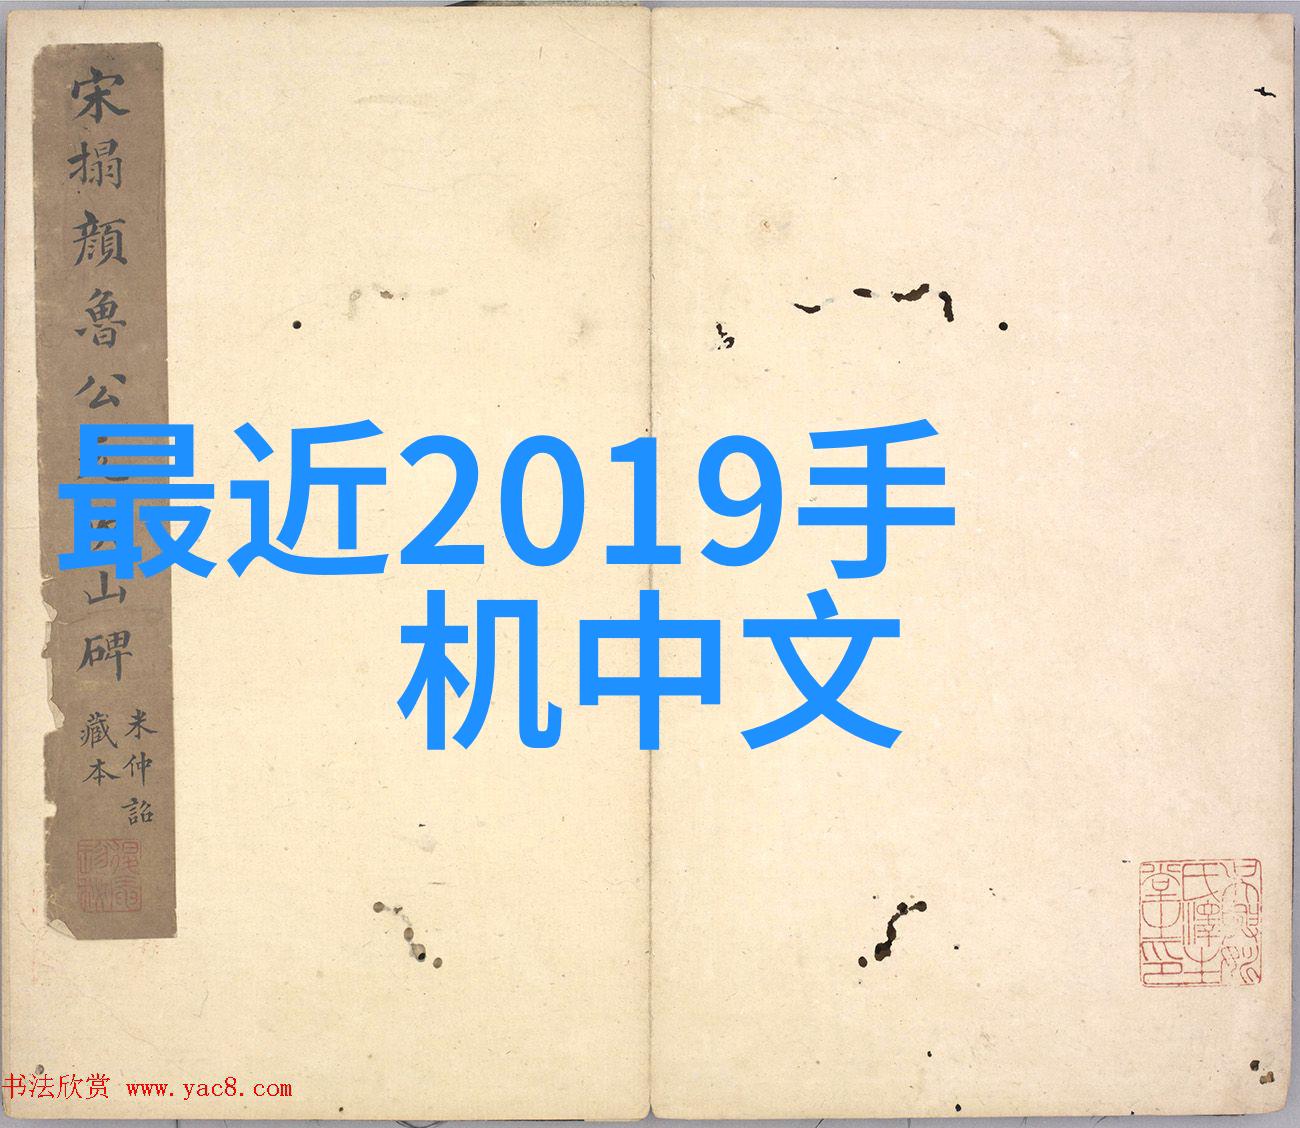 宋搨顏魯公
山碑
米仲詔
藏本
最近2019手
机中文
书法欣赏 www.yac8.com